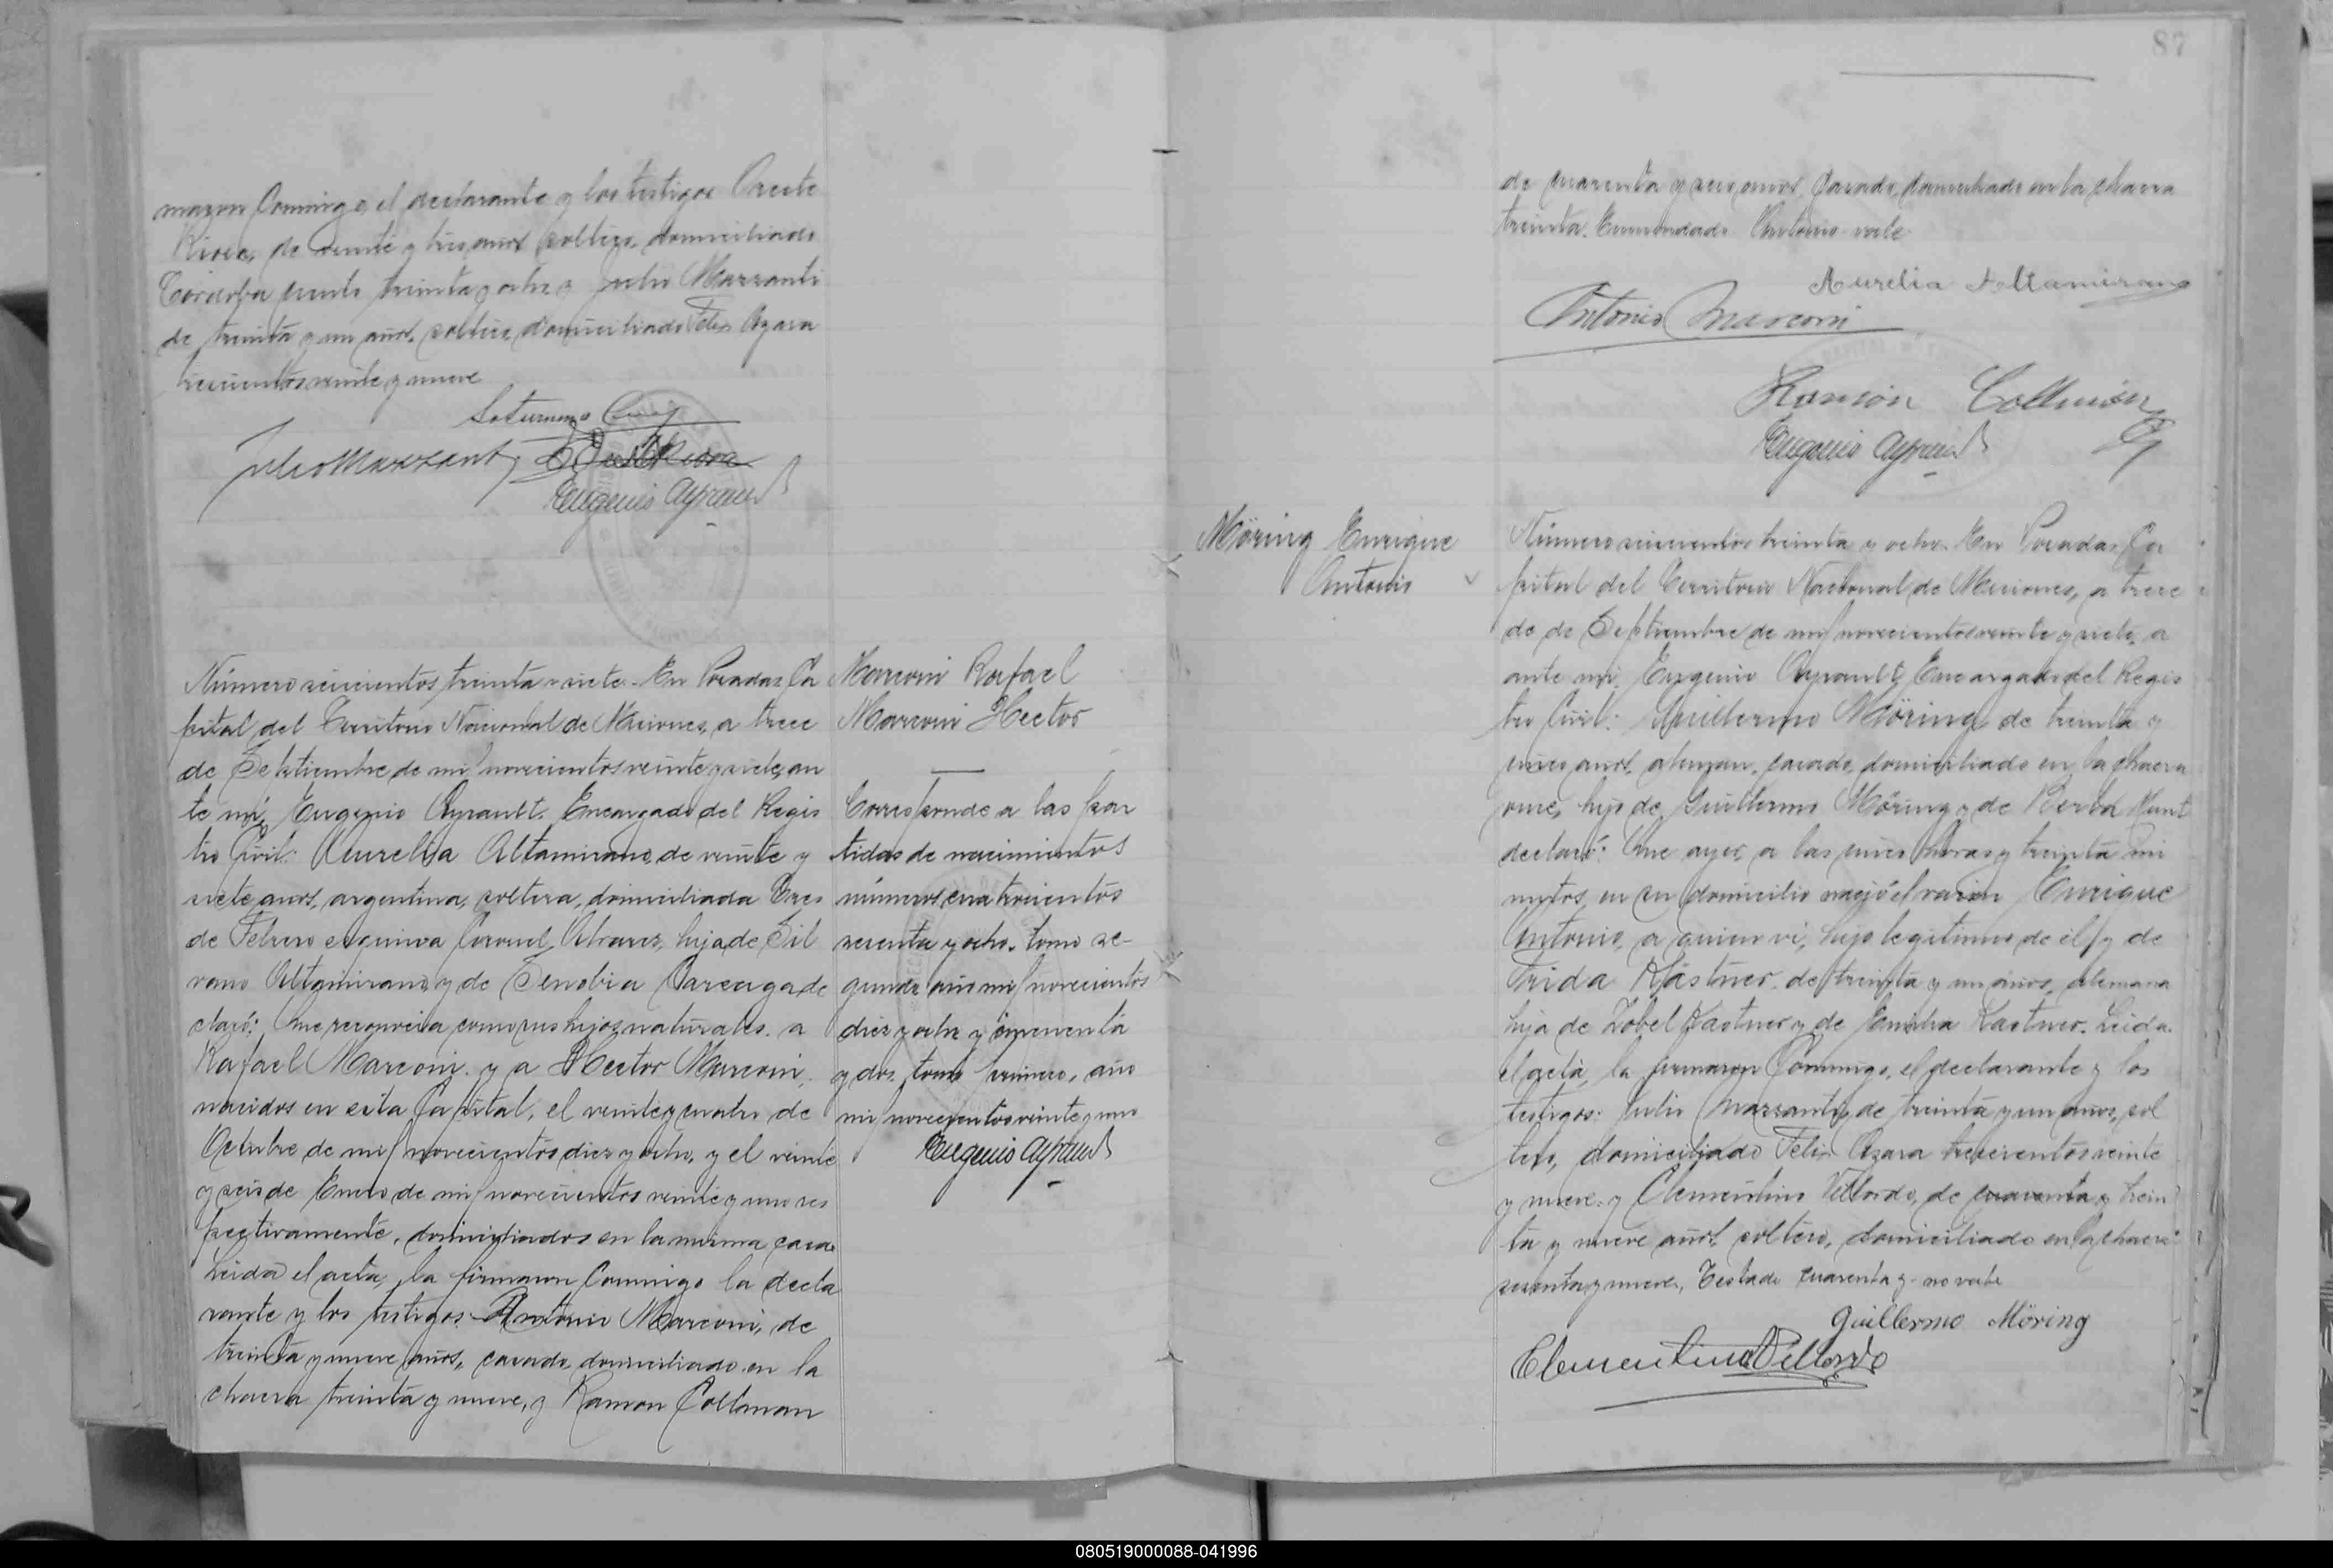 maron conmigo, el declarante y los testigos Oreste
de veinte y tres años, soltero, domiciliado
Córdoba ciento treinta y ocho y Julio Mazzanti
de treinta y un años, soltero, domiciliado Felix Azara
trescientos veinte y nueve
Saturnino
Julio Mazzanti
Eugenio Ayrault
Número seiscientos treinta y siete. En Posadas Ca
pital del Territorio Nacional de Misiones, a trece
de Septiembre de mil novecientos veinte y siete, an
te mí, Eugenio Ayrault. Encargado del Regis
tro Civil: Aurelia Altamirano, de veinte y
siete años, argentina, soltera, domiciliada Tres
de Febrero esquina Coronel Alvarez, hija de Sil
vano Altamirano y de Senobia de
claró: Que reconocía como sus hijos naturales. a
Rafael Marconi. y a Hector Marconi,
nacidos en esta Capital, el veinte y cuatro de
Octubre de mil novecientos diez y ocho, y el veinte
y seis de Enero de mil novecientos veinte y uno res
pectivamente, domiciliados en la misma casa.
Leida el acta, la firmaron conmigo la decla
rante y los testigos Antonio Marconi, de
treinta y nueve años, casado, domiciliado en la
chacra treinta y nueve, y Ramon Collman
Marconi Rafael
Marconi Hector
Corresponde a las par
tidas de nacimientos
números cuatrocientos
sesenta y ocho. tomo se-
gundo año mil novecientos
diez y ocho y cincuenta
y dos. tomo primero, año
mil novecientos veinte y uno
Eugenio Ayrault
87
de cuarenta y seis años, casado, domiciliado en la chacra
treinta. Enmendado Antonio vale
Aurelia Altamirano
Antonio Marconi
Ramón
Eugenio Ayrault
Möring Enrique
Antonio
Número seiscientos treinta y ocho. En Posadas, Ca
pital del Territorio Nacional de Misiones, a trece
de de Septiembre de mil novecientos veinte y siete, a
ante mí, Eugenio Ayrault, Encargado del Regis
tro Civil: Guillermo Möring, de treinta y
cinco años, aleman, casado, domiciliado en la chacra
once, hijo de Guillermo Möring y de Berta
declaró: Que ayer, a las cinco horas y treinta mi
nutos, en su domicilio nació el varon Enrique
Antonio, a quien ví, hijo legitimo de él y de
Frida Kästner. de treinta y un años, alemana
hija de Kastner y de Emilia Kastner. Leida.
el acta, la firmaron conmigo, el declarante y los
testigos: Julio Mazzanti, de treinta y un años, sol
tero, domiciliado Felix Azara trescientos veinte
y nueve. y Clementino Vellordo, de cuarenta y trein
ta y nueve años, soltero, domiciliado en la chacra
sesenta y nueve. Testado cuarenta y - no vale
Guillermo Möring